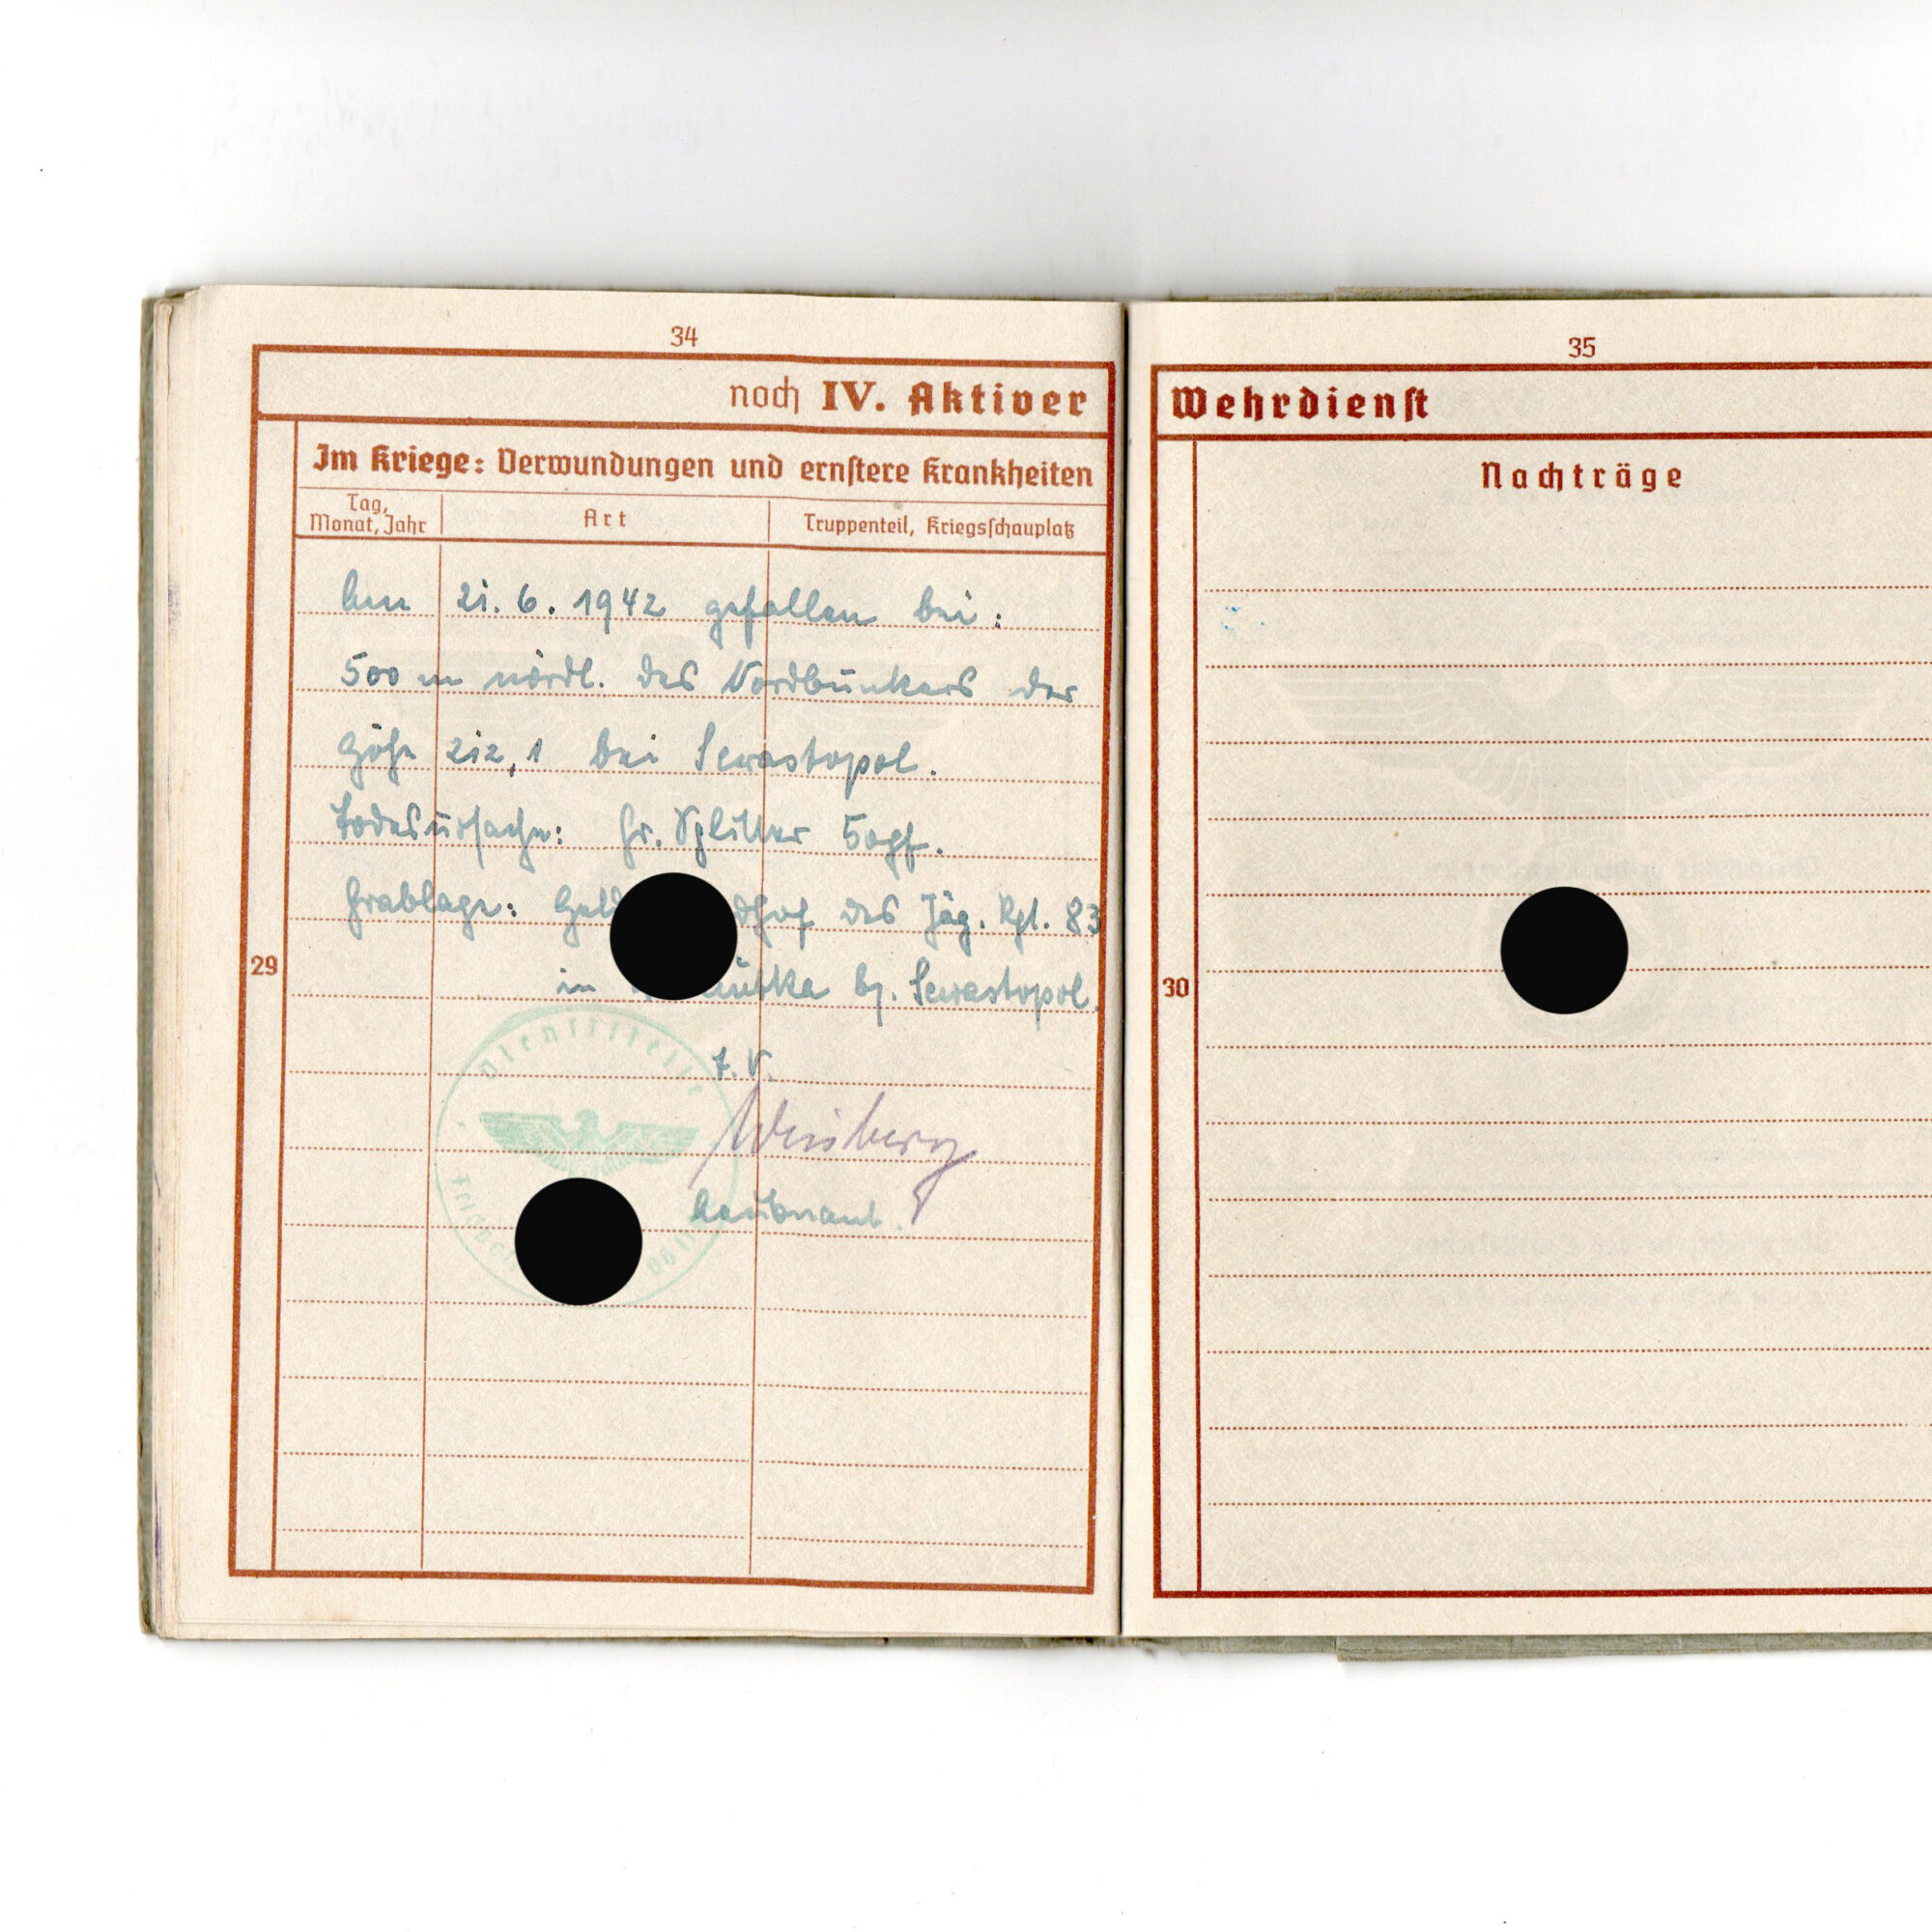 34
noch IV. Aktiver
Im Kriege: Verwundungen und ernstere Krankheiten
Tag, Monat, Jahr
Art
Truppenteil, Kriegsschauplatz
Am 21.6.1942 gefallen bei:
500 m nördl. des Nordbunkers der
Höhe 212,1 bei Sewastopol.
Todesursache: Gr. Splitter
Grablage: des Jäg. Rgt. 83
in b. Sewastopol.
29
Dienststelle
I.V.
Leutnant.
35
Wehrdienst
Nachträge
30